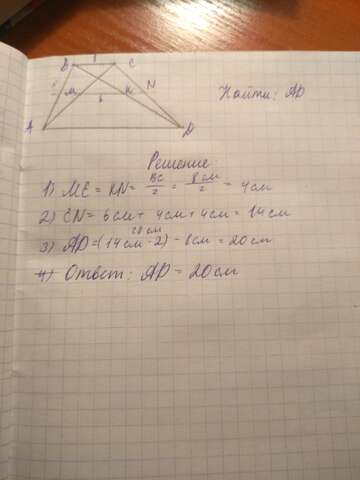 B C
M K N
6
A D
Найти: AD
Решение:
1) ME = KN = BC/2 = 8см/2 = 4см
2) EN = 6см + 4см + 4см = 14см
28см
3) AD = (14см · 2) - 8см = 20см
4) Ответ: AD = 20см